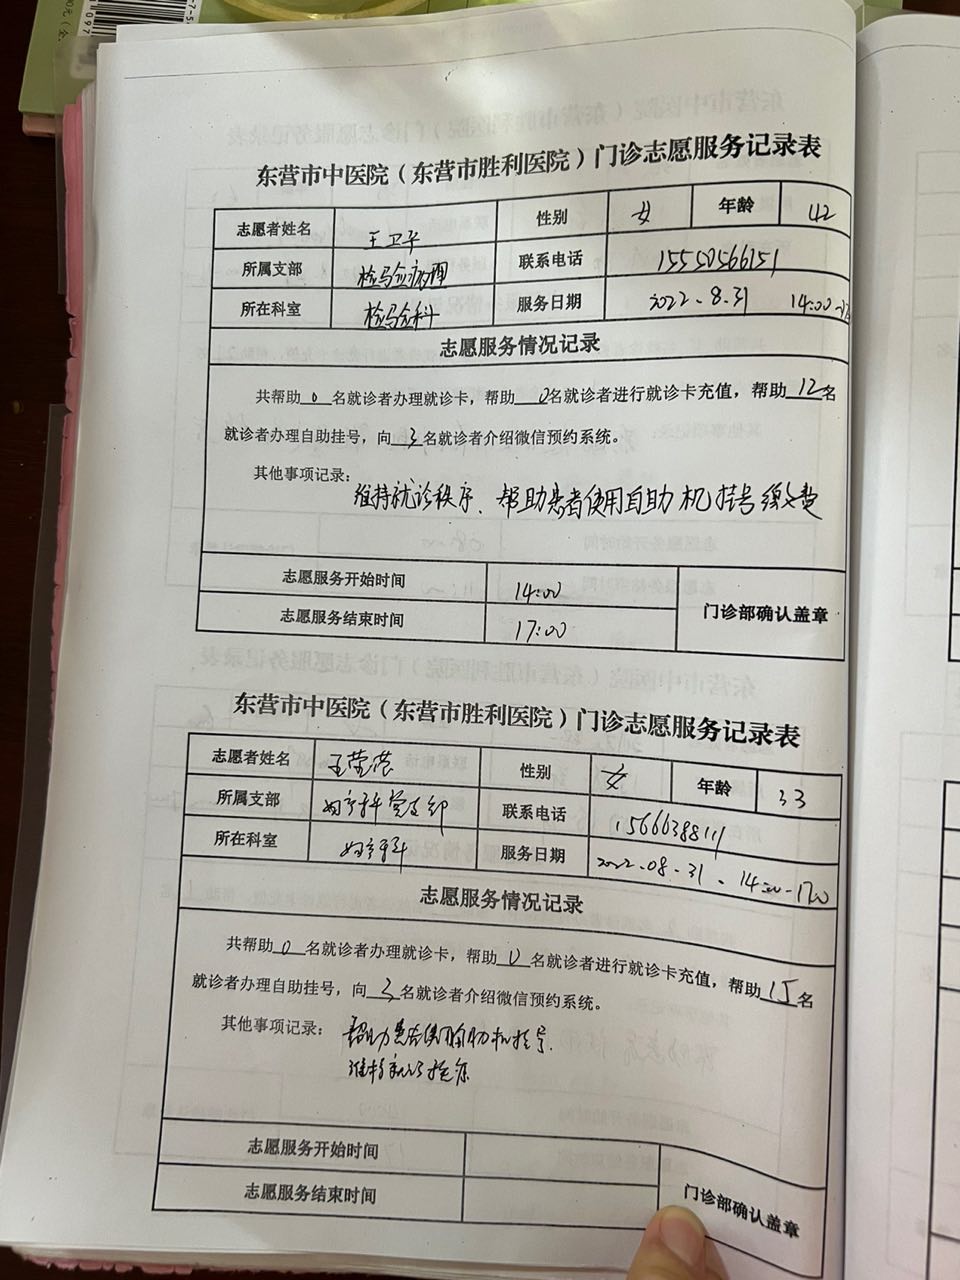 东营市中医院（东营市胜利医院）门诊志愿服务记录表
志愿者姓名 王卫平 性别 女 年龄 42
所属支部 检验病理 联系电话 15550566151
所在科室 检验科 服务日期 2022.8.31 14:00
志愿服务情况记录
共帮助 0 名就诊者办理就诊卡，帮助 0 名就诊者进行就诊卡充值，帮助 12 名
就诊者办理自助挂号，向 3 名就诊者介绍微信预约系统。
其他事项记录：
维持就诊秩序、帮助患者使用自助机挂号缴费
志愿服务开始时间 14:00
志愿服务结束时间 17:00
门诊部确认盖章
东营市中医院（东营市胜利医院）门诊志愿服务记录表
志愿者姓名 王莹莹 性别 女 年龄 33
所属支部 妇产科党支部 联系电话 15666388111
所在科室 妇产科 服务日期 2022.08.31. 14:00-17:00
志愿服务情况记录
共帮助 0 名就诊者办理就诊卡，帮助 0 名就诊者进行就诊卡充值，帮助 15 名
就诊者办理自助挂号，向 3 名就诊者介绍微信预约系统。
其他事项记录： 帮助患者使用自助机挂号.
维持就诊秩序
志愿服务开始时间
志愿服务结束时间
门诊部确认盖章